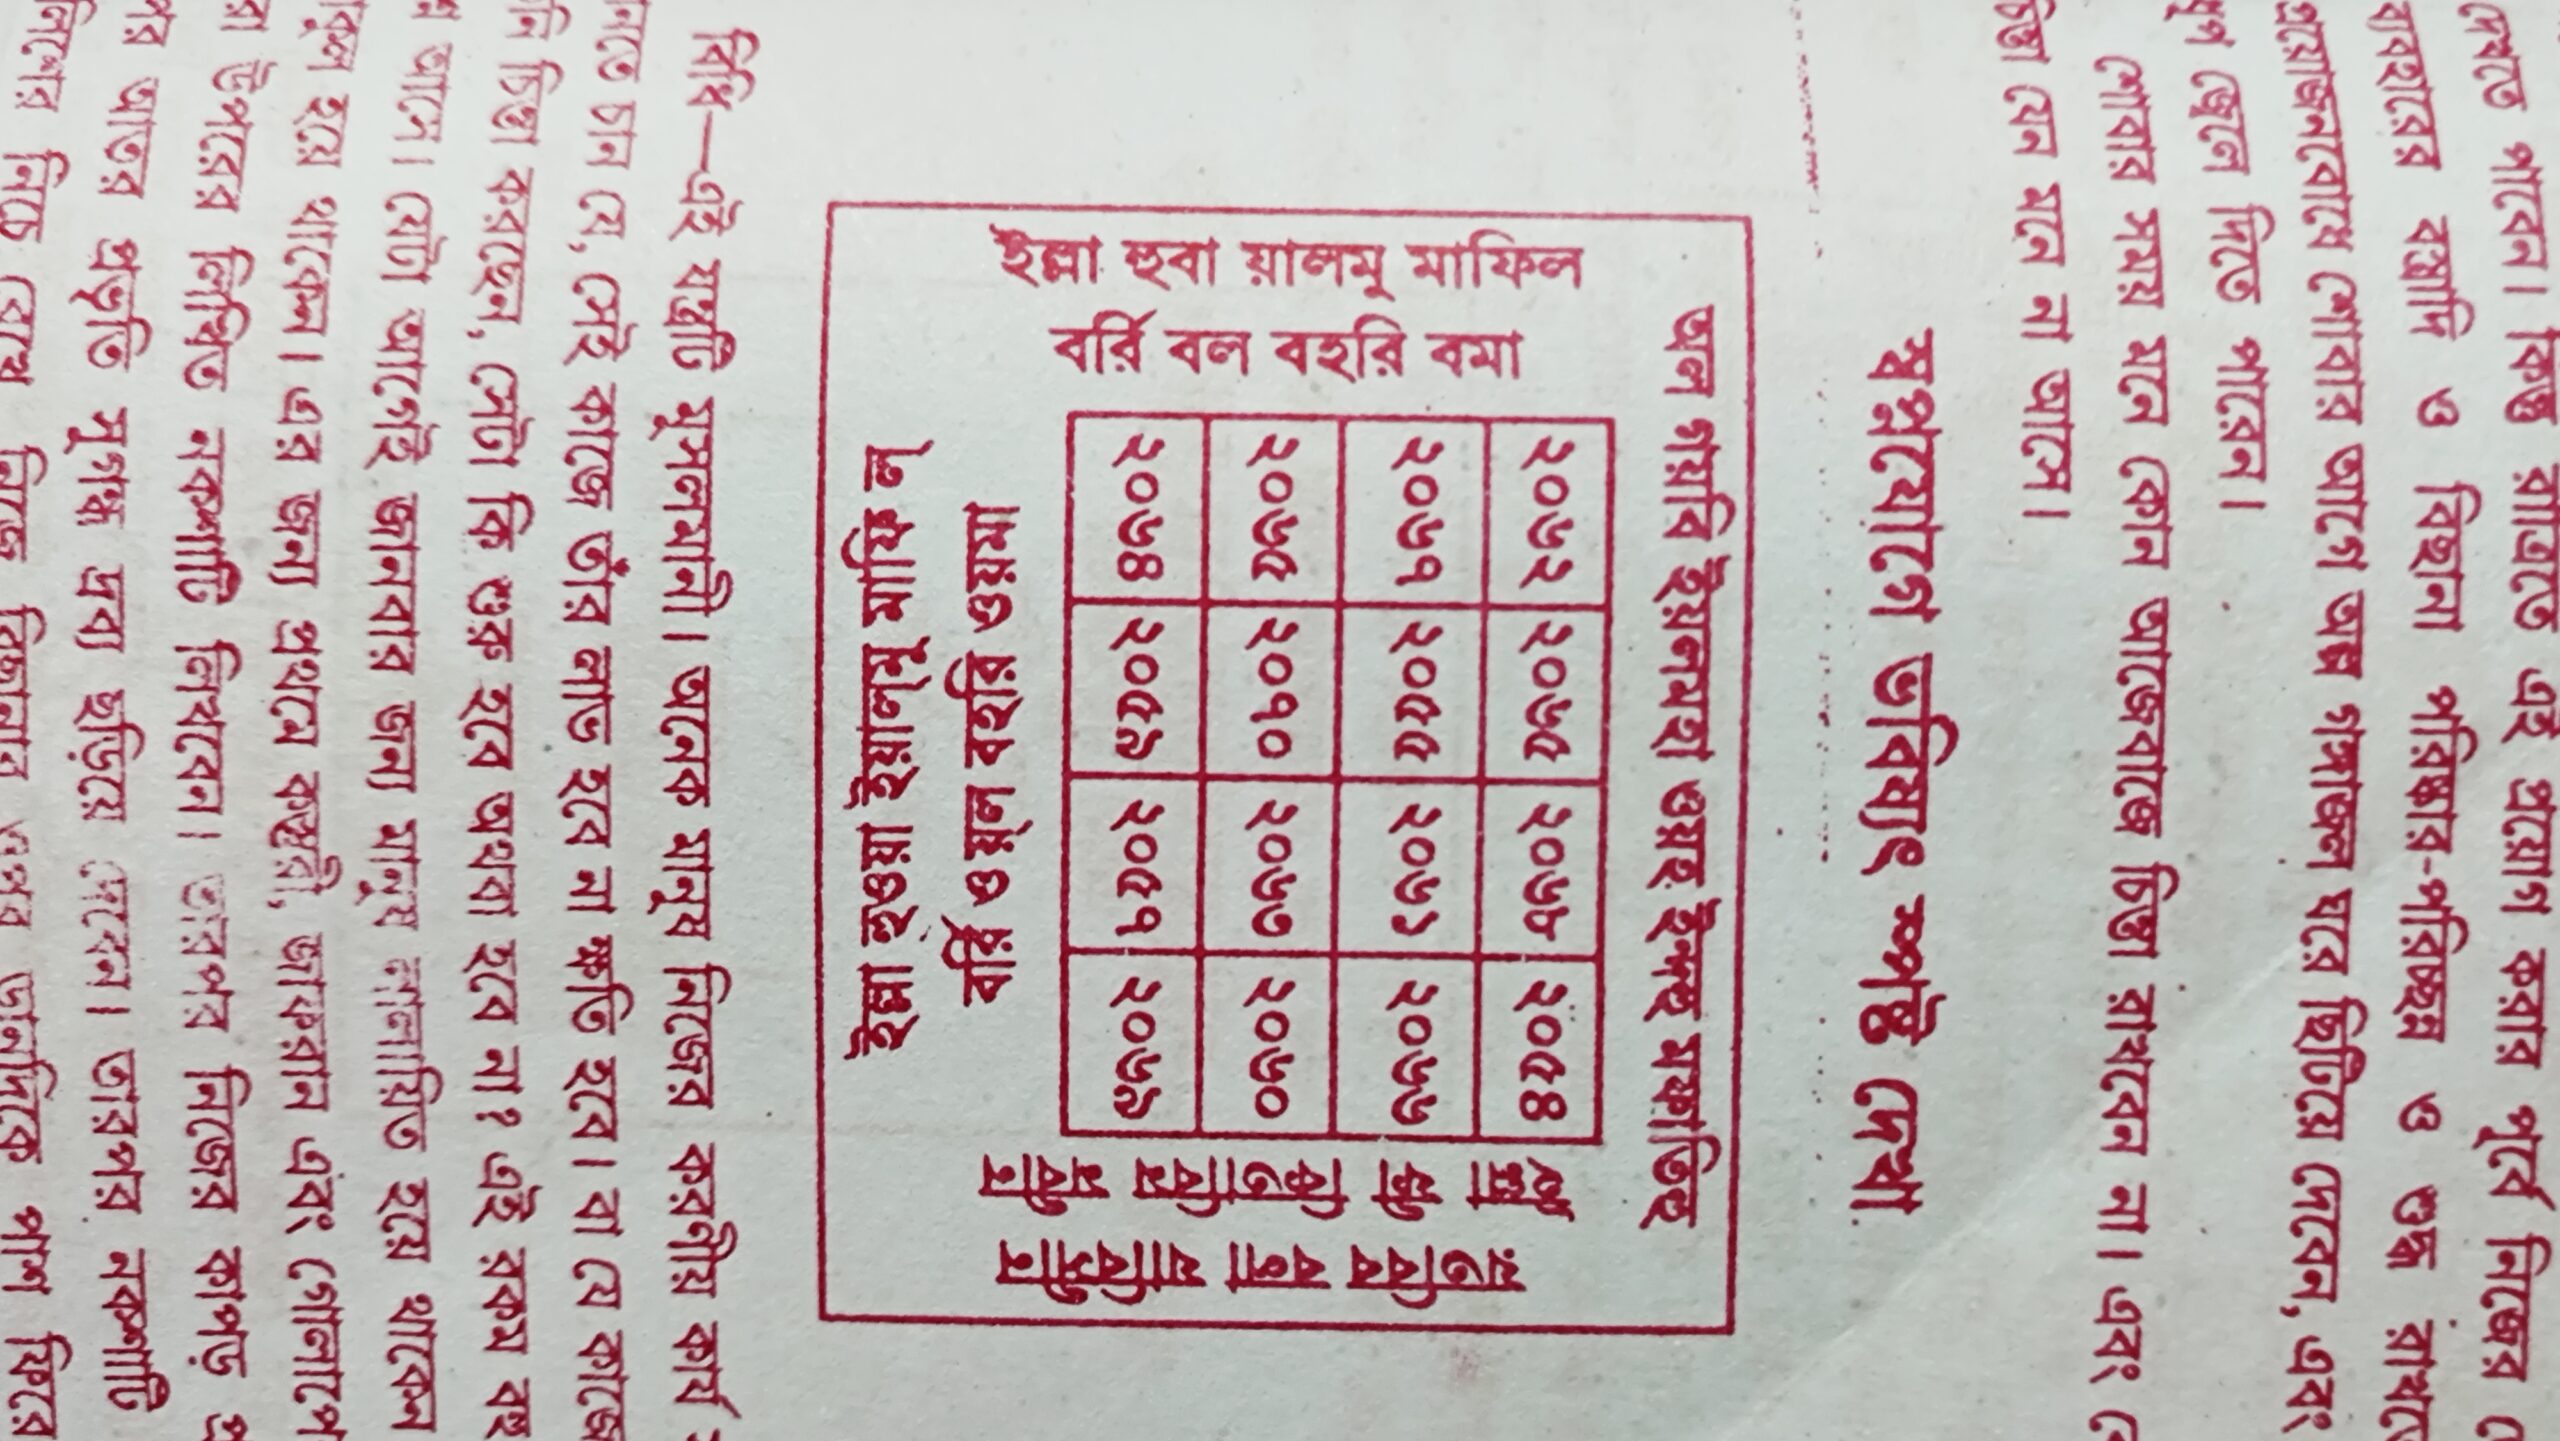 দেখতে পাবেন। কিন্তু রাত্রিতে এই প্রয়োগ করার পূর্বে নিজের
ব্যবহারের বস্ত্রাদি ও বিছানা পরিষ্কার-পরিচ্ছন্ন ও শুদ্ধ রাখতে
প্রয়োজনবোধে শোবার আগে অল্প গঙ্গাজল ঘরে ছিটিয়ে দেবেন, এবং
ধূপ জ্বেলে দিতে পারেন।
শোবার সময় মনে কোন আজেবাজে চিন্তা রাখবেন না। এবং
চিন্তা যেন মনে না আসে।
স্বপ্নযোগে ভবিষ্যৎ স্পষ্ট দেখা
অল গয়বি ইয়লমহা ওয়হ ইন্দহু মফাতিহু
ইল্লা হুবা য়ালমু মাফিল
বর্রি বল বহরি বমা
২০৬২ ২০৬৫ ২০৬৮ ২০৫৪
২০৬৭ ২০৫৫ ২০৬১ ২০৬৬
২০৬৫ ২০৭০ ২০৬৩ ২০৬০
২০৬৪ ২০৫৯ ২০৫৭ ২০৬৯
বর্রি ওয়ল বহরি ওয়মা
ইল্লা হুওয়া ইয়ালমু মাফি ল্
বিধি—এই যন্ত্রটি মুসলমানী। অনেক মানুষ নিজের করণীয় কার্য
চান যে, সেই কাজে তাঁর লাভ হবে না ক্ষতি হবে। বা যে কাজে
চিন্তা করছেন, সেটা কি শুরু হবে অথবা হবে না? এই রকম বহু
আসে। যেটা আগেই জানবার জন্য মানুষ লালায়িত হয়ে থাকেন
হয়ে থাকেন। এর জন্য প্রথমে কস্তুরী, জাফরান এবং গোলাপ
উপরের লিখিত নকশাটি লিখবেন। তারপর নিজের কাপড়
আতর প্রভৃতি সুগন্ধ দ্রব্য ছড়িয়ে দেবেন। তারপর নকশাটি
নিচে রেখে ডানদিকে পাশ ফিরে